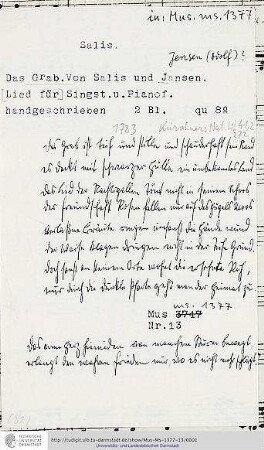 in: Mus. ms. 1377
Salis.
Jensen (Adolf)?
Das Grab. Von Salis und Jansen.
Lied für Singst.u.Pianof.
handgeschrieben 2 Bl. qu 8º
1783
Das Grab ist tief und stille und schauderhaft sein Rand
es deckt mit schwarzer Hülle ein unbekanntes Land
das Lied der Nachtigallen tönt nicht in seinem Schoos
der Freundschaft Rosen fallen nur auf des Hügels Moos
Verlaßne Bräute ringen umsonst die Hände wund
der Waise Klagen dringen nicht in der Tiefe Grund.
doch sonst an keinem Orte wohnt die ersehnte Ruh,
nur durch die dunkle Pforte geht man der Heimat zu
ms. 1377
Mus 3717
Nr.13
das arme Herz hienieden von manchem Sturm bewegt
erlangt den wahren Frieden nur wo es nicht mehr schlägt
http://tudigit.ulb.tu-darmstadt.de/show/Mus-Ms-1377-13/0001
Universitäts- und Landesbibliothek Darmstadt